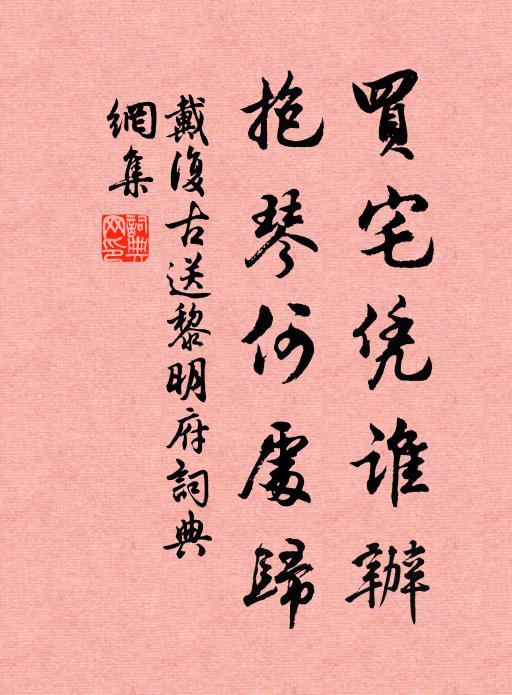 買宅凭誰辦
抱琴何處歸
戴復古送黎明府詞典
網集
詞典網印